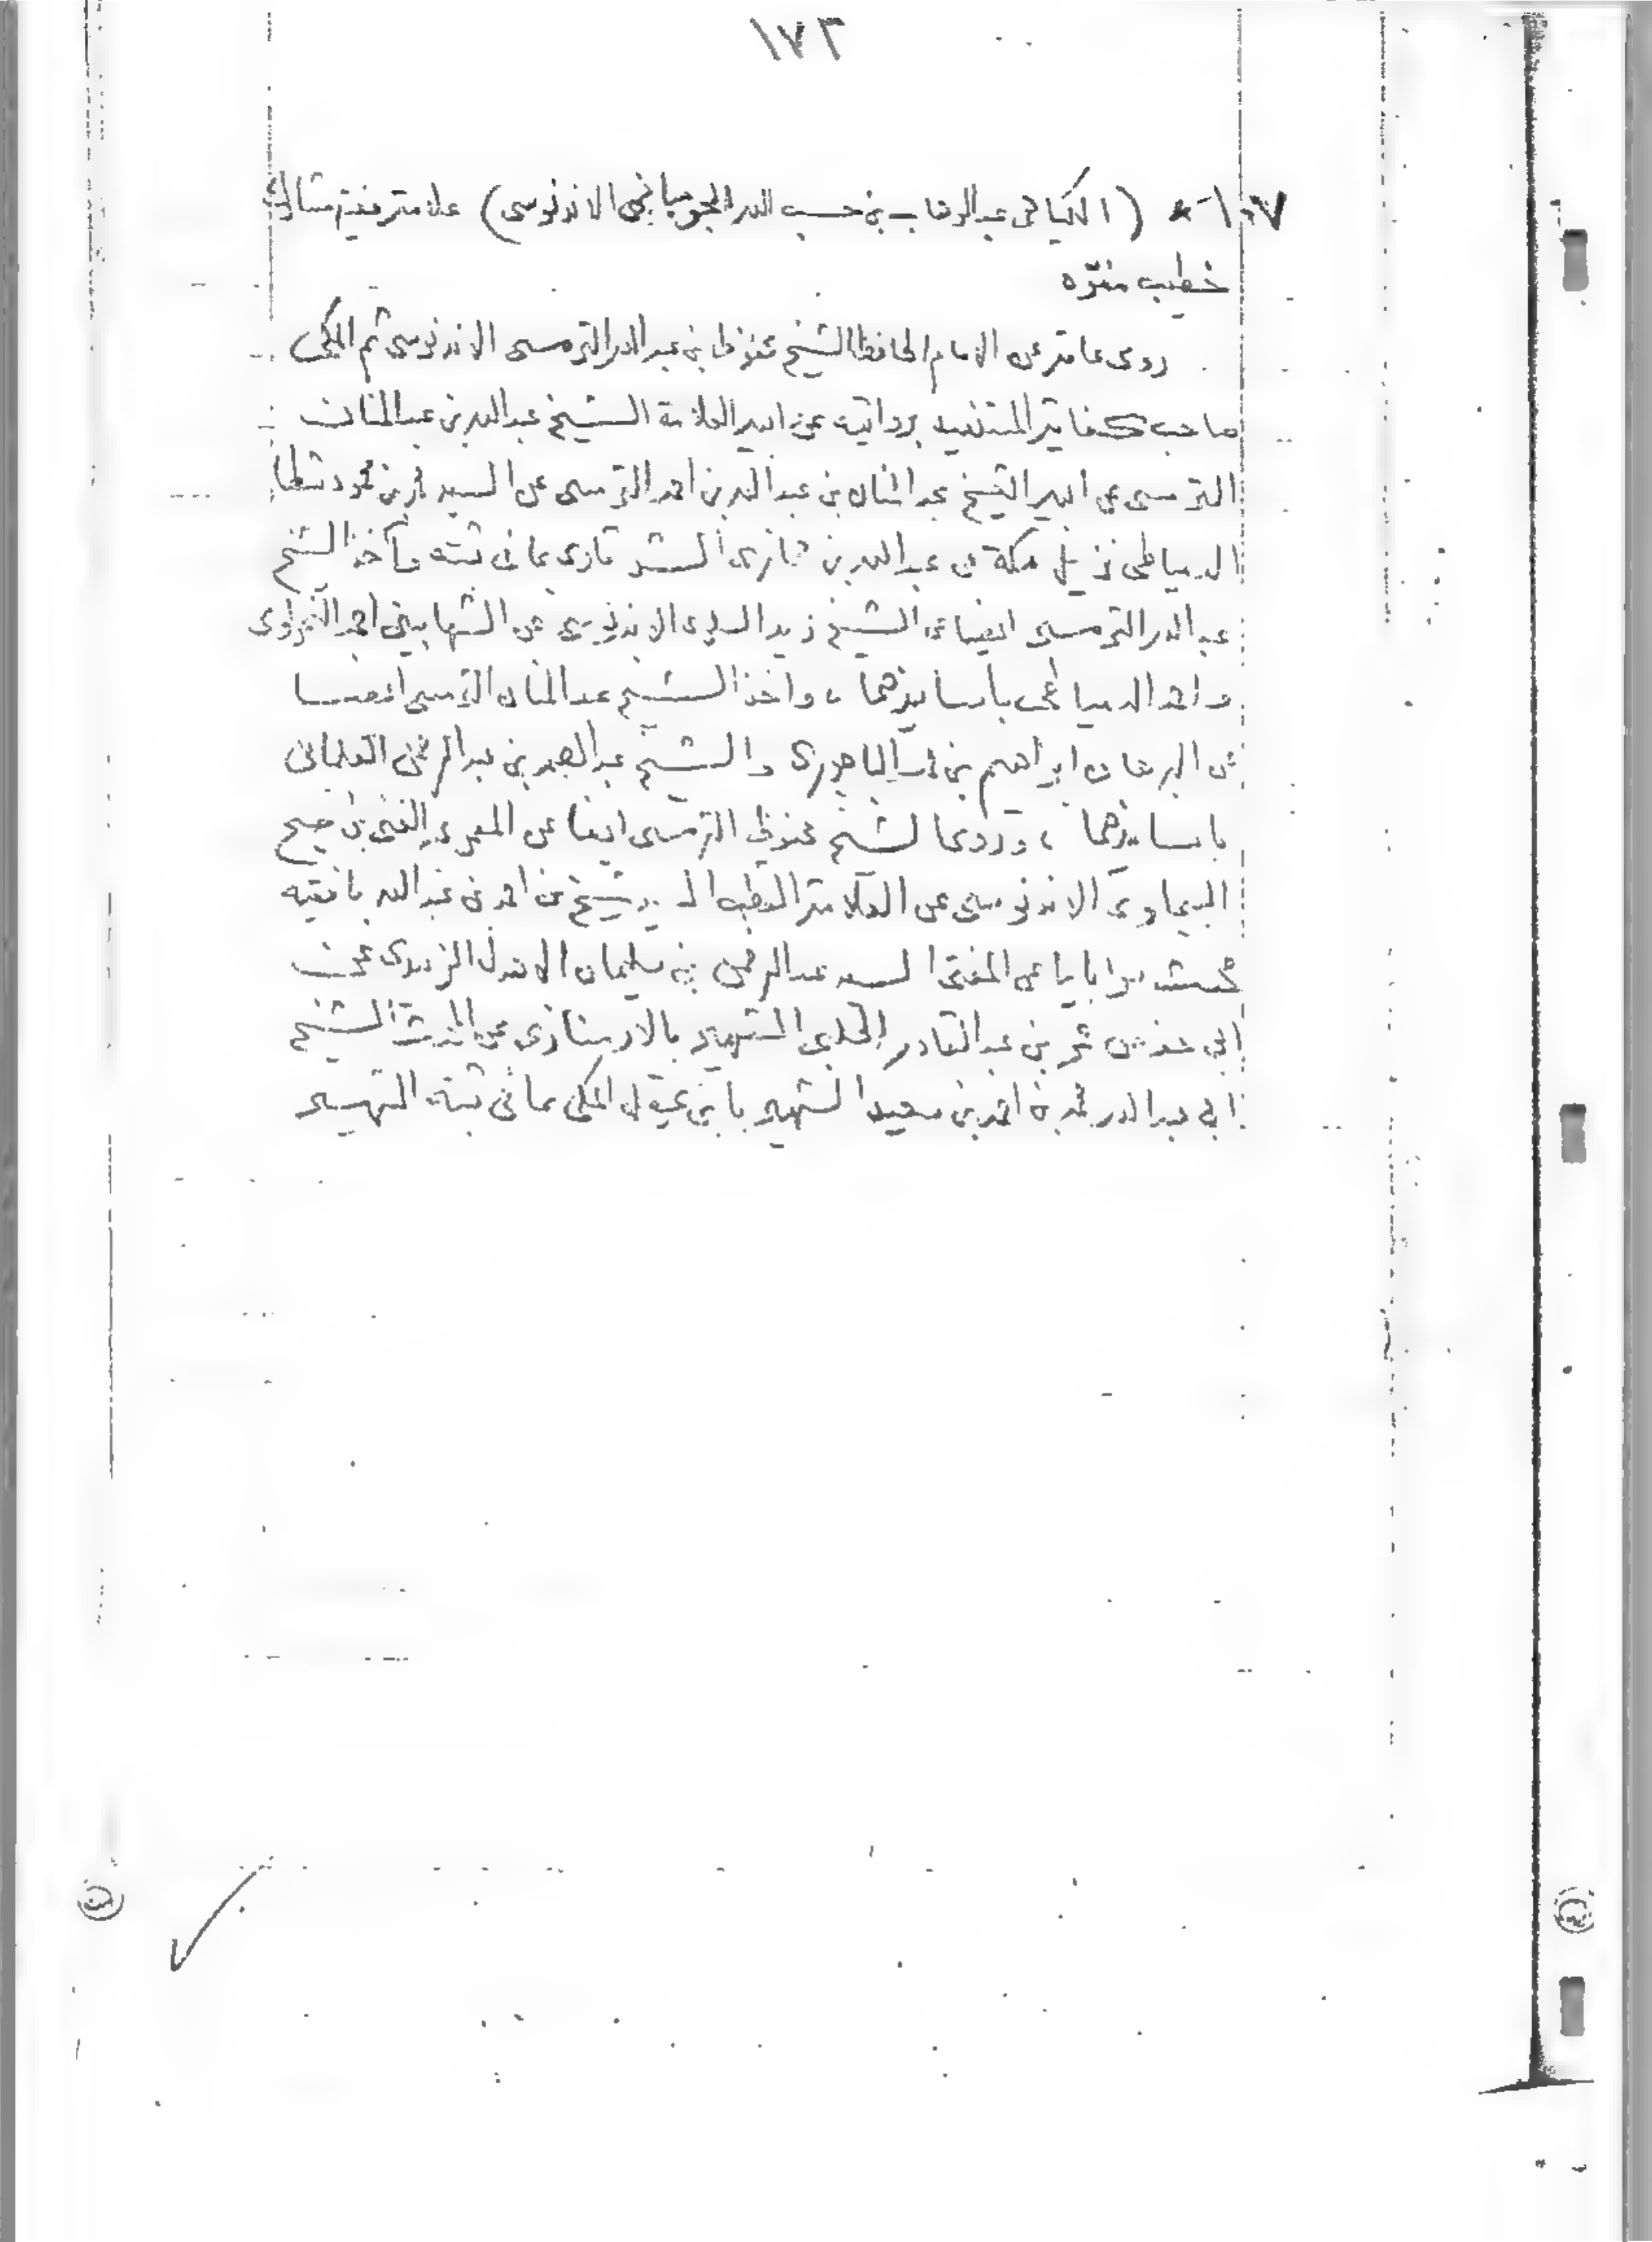 ١٧٣
١٠٧-* (الكياهى عبدالوهاب بن حسب الله الجومبانجى الاندونوسى) علامة فقيه مشارك
خطيب مفوّه
روى عامة عن الامام الحافظ الشيخ محفوظ بن عبدالله الترمسى الاندونوسى ثم المكى
صاحب كفاية المستفيد بروايته عن ابيه العلامة الشيخ عبدالله بن عبدالمنان
الترمسى عن ابيه الشيخ عبدالمنان بن عبدالله بن احمد الترمسى عن السيد محمد بن محمود شطا
الدمياطى نزيل مكة عن عبدالله بن حجازى الشرقاوى بما فى ثبته وأخذ الشيخ
عبدالله الترمسى ايضا عن الشيخ زيد السولوى الاندونوسى عن الشهابين احمد النحراوى
واحمد الدمياطى بأسانيدهما، واخذ الشيخ عبدالمنان الترمسى ايضا
عن البرهان ابراهيم بن محمد الباجورى والشيخ عبدالصمد بن عبدالرحمن الفلمبانى
بأسانيدهما، وروى الشيخ محفوظ الترمسى ايضا عن المعمر عبدالغنى بن صبيح
البيماوى الاندونوسى عن العلامة القطب السيد شيخ بن احمد بن عبدالله بافقيه
سرابايا عن المفتى السيد عبدالرحمن بن سليمان الاهدل الزبيدى عن
ابى حفص عمر بن عبدالقادر الحلبى الشهير بالارمنازى عن المحدث الشيخ
ابى عبدالله محمد بن احمد بن سعيد الشهير بابن عقيلة المكى بما فى ثبته الشهير